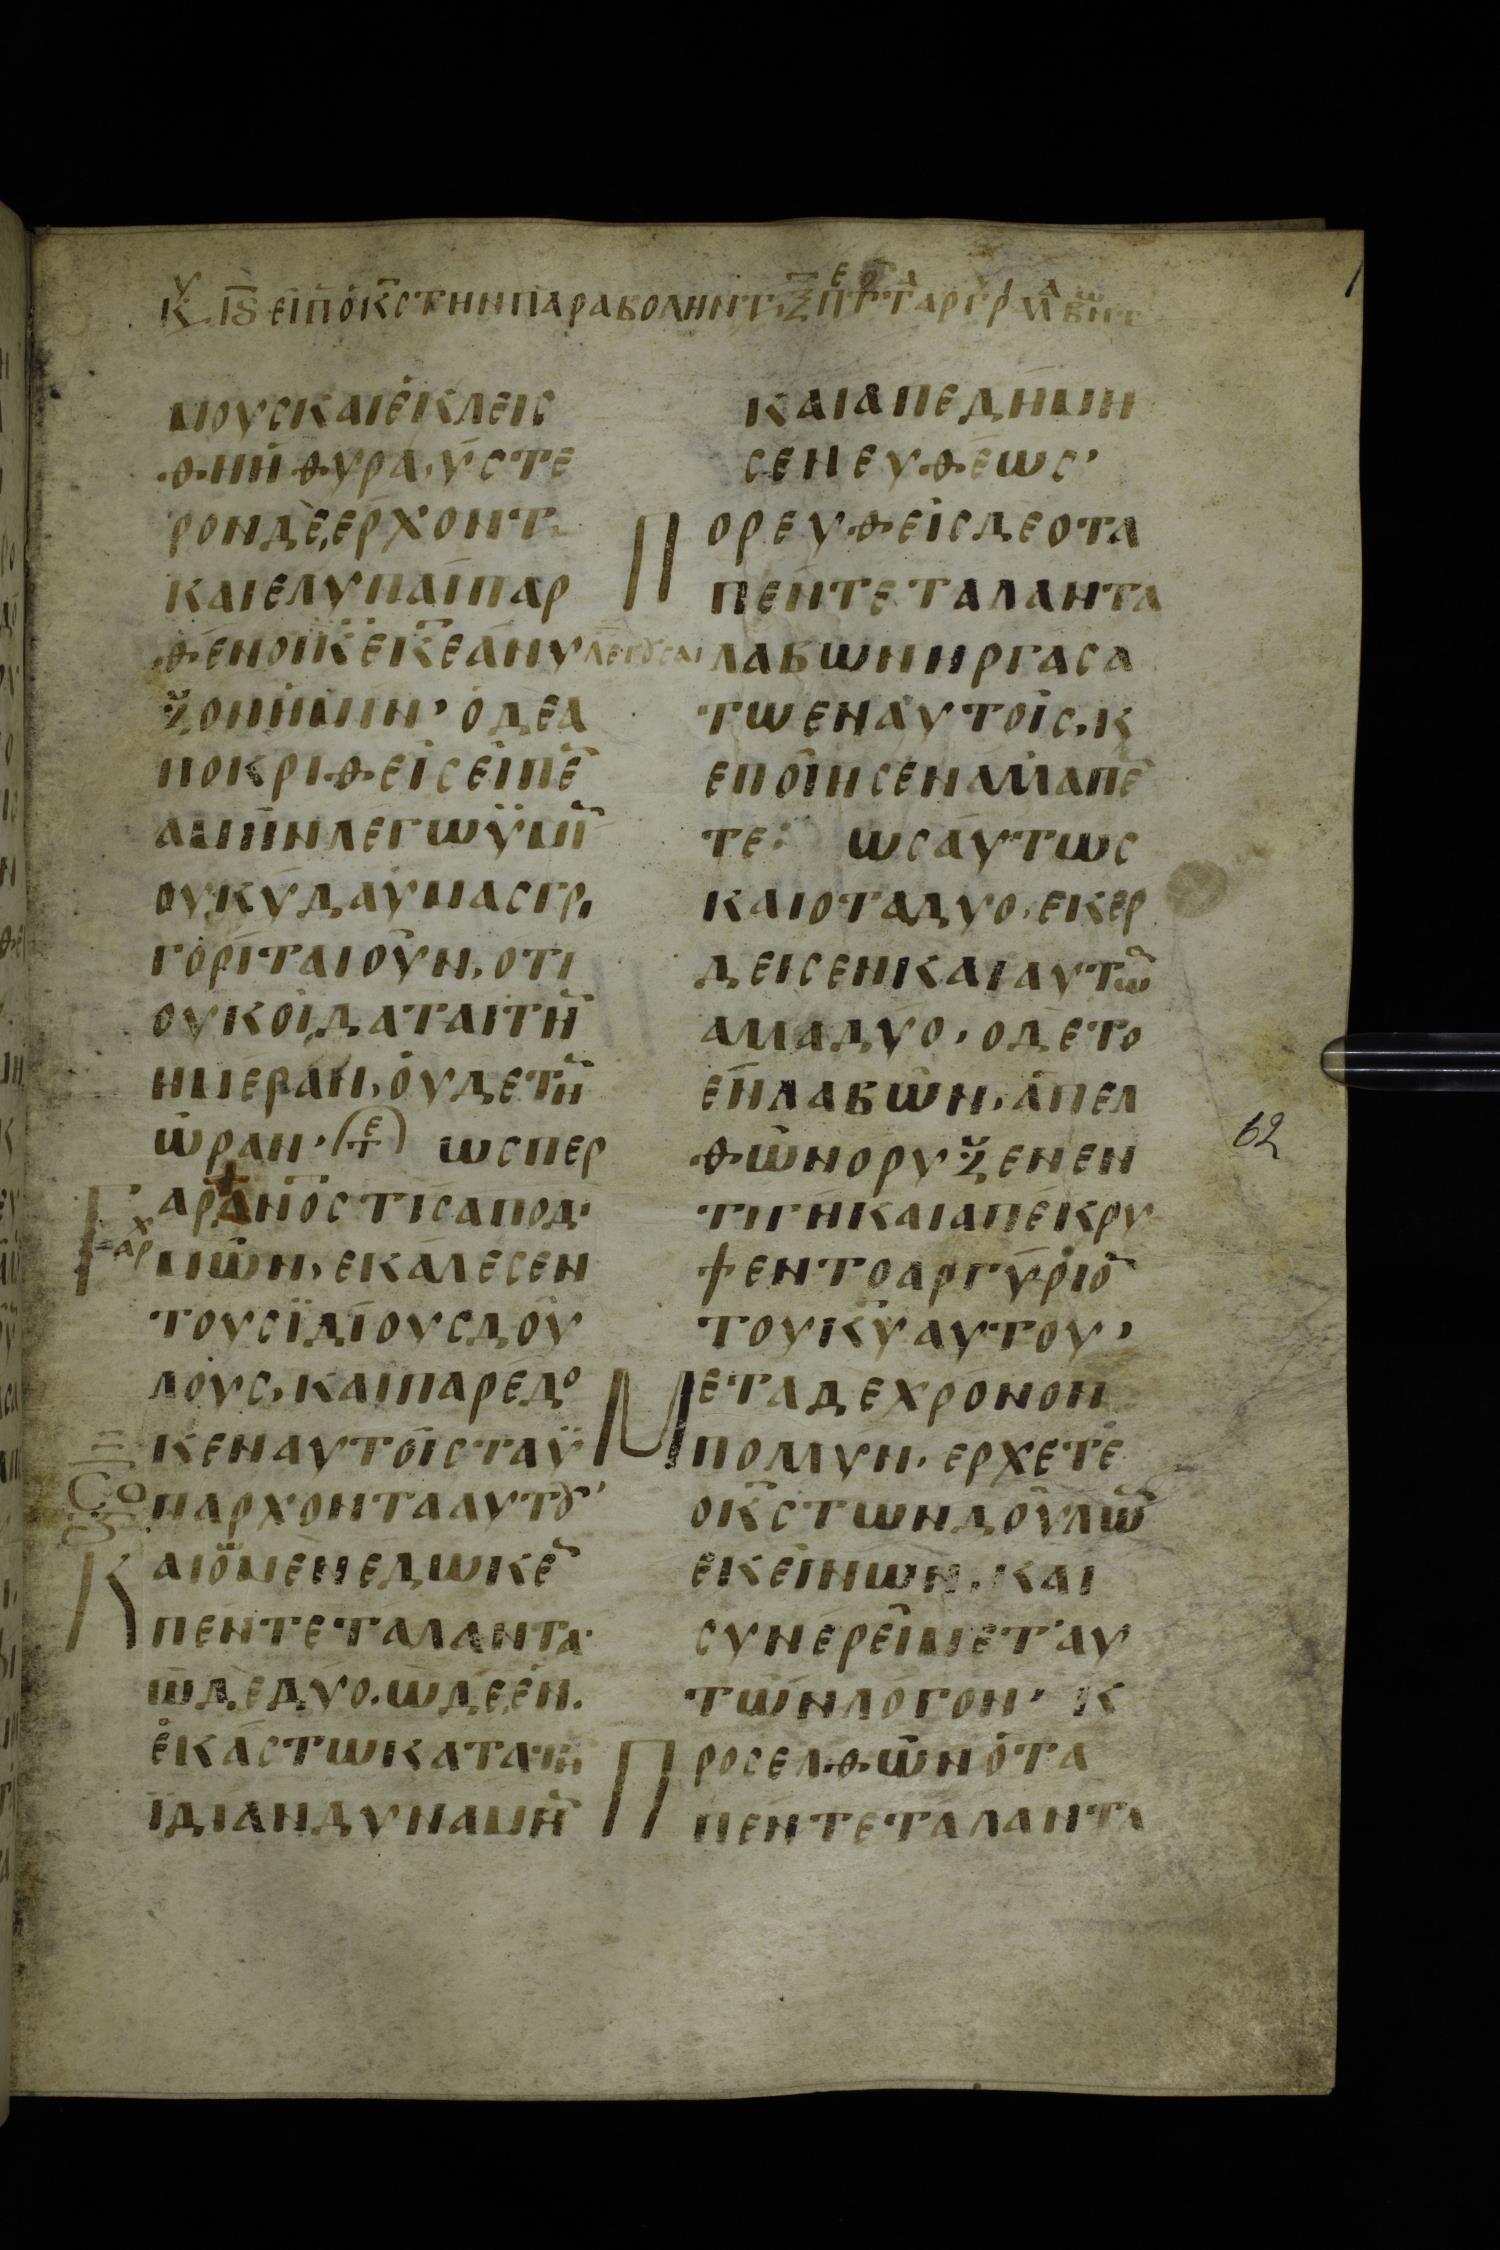 ΜΟΥΣ ΚΑΙ ΕΚΛΕΙΣ
ΘΗ Η ΘΥΡΑ, ΥΣΤΕ
ΡΟΝ ΔΕ, ΕΡΧΟΝΤ
ΚΑΙ Ε ΛΥΠΑΙ ΠΑΡ
ΘΕΝΟΙ Κ̅Ε̅ Κ̅Ε̅ ΑΝΥ
ΞΟΝ ΗΜΙΝ, Ο ΔΕ Α
ΠΟΚΡΙΘΕΙΣ ΕΙΠΕ
ΑΜΙΝ ΛΕΓΩ ΥΜΙ
ΟΥΚ ΥΔΑ ΥΜΑΣ ΓΡ
ΓΟΡΙΤΑΙ ΟΥΝ, ΟΤΙ
ΟΥΚ ΟΙΔΑΤΑΙ ΤΗ
ΗΜΕΡΑΝ, ΟΥΔΕ ΤΗ
ΩΡΑΝ, ΩΣΠΕΡ
ΑΡ ΑΝΟΣ ΤΙΣ ΑΠΟΔ
ΜΩΝ, ΕΚΑΛΕΣΕΝ
ΤΟΥΣ ΙΔΙΟΥΣ ΔΟΥ
ΛΟΥΣ, ΚΑΙ ΠΑΡΕΔΟ
ΚΕΝ ΑΥΤΟΙΣ ΤΑ Υ
ΠΑΡΧΟΝΤΑ ΑΥΤȢ,
Κ ΑΙ Ο ΜΕΝ ΕΔΩΚΕ
ΠΕΝΤΕ ΤΑΛΑΝΤΑ·
Ω ΔΕ ΔΥΟ. Ω ΔΕ ΕΝ.
ΕΚΑΣΤΩ ΚΑΤΑ ΤΗ
ΙΔΙΑΝ ΔΥΝΑΜΗ
ΚΑΙ ΑΠΕΔΗΜΗ
ΣΕΝ ΕΥΘΕΩΣ,
Π ΟΡΕΥΘΕΙΣ ΔΕ Ο ΤΑ
ΠΕΝΤΕ ΤΑΛΑΝΤΑ
ΛΑΒΩΝ ΗΡΓΑΣΑ
ΤΩ ΕΝ ΑΥΤΟΙΣ, Κ
ΕΠΟΙΗΣΕΝ ΑΜΑ ΠΕ
ΤΕ: ΩΣΑΥΤΩΣ
ΚΑΙ Ο ΤΑ ΔΥΟ, ΕΚΕΡ
ΔΕΙΣΕΝ ΚΑΙ ΑΥΤΩ
ΑΜΑ ΔΥΟ, Ο ΔΕ ΤΟ
ΕΝ ΛΑΒΩΝ, ΑΠΕΛ
ΘΩΝ ΟΡΥΞΕΝ ΕΝ
ΤΙ ΓΗ ΚΑΙ ΑΠΕΚΡΥ
ΨΕΝ ΤΟ ΑΡΓΥΡΙΟ
ΤΟΥ Κ̅Υ̅ ΑΥΤΟΥ,
Μ ΕΤΑ ΔΕ ΧΡΟΝΟΝ
ΠΟΛΛΥΝ. ΕΡΧΕΤΕ
Ο Κ̅Σ̅ ΤΩΝ ΔΟΥΛΩ
ΕΚΕΙΝΩΝ, ΚΑΙ
ΣΥΝΕΡΕΙ ΜΕΤ ΑΥ
ΤΩΝ ΛΟΓΟΝ, Κ
Π ΡΟΣΕΛΘΩΝ Ο ΤΑ
ΠΕΝΤΕ ΤΑΛΑΝΤΑ
62